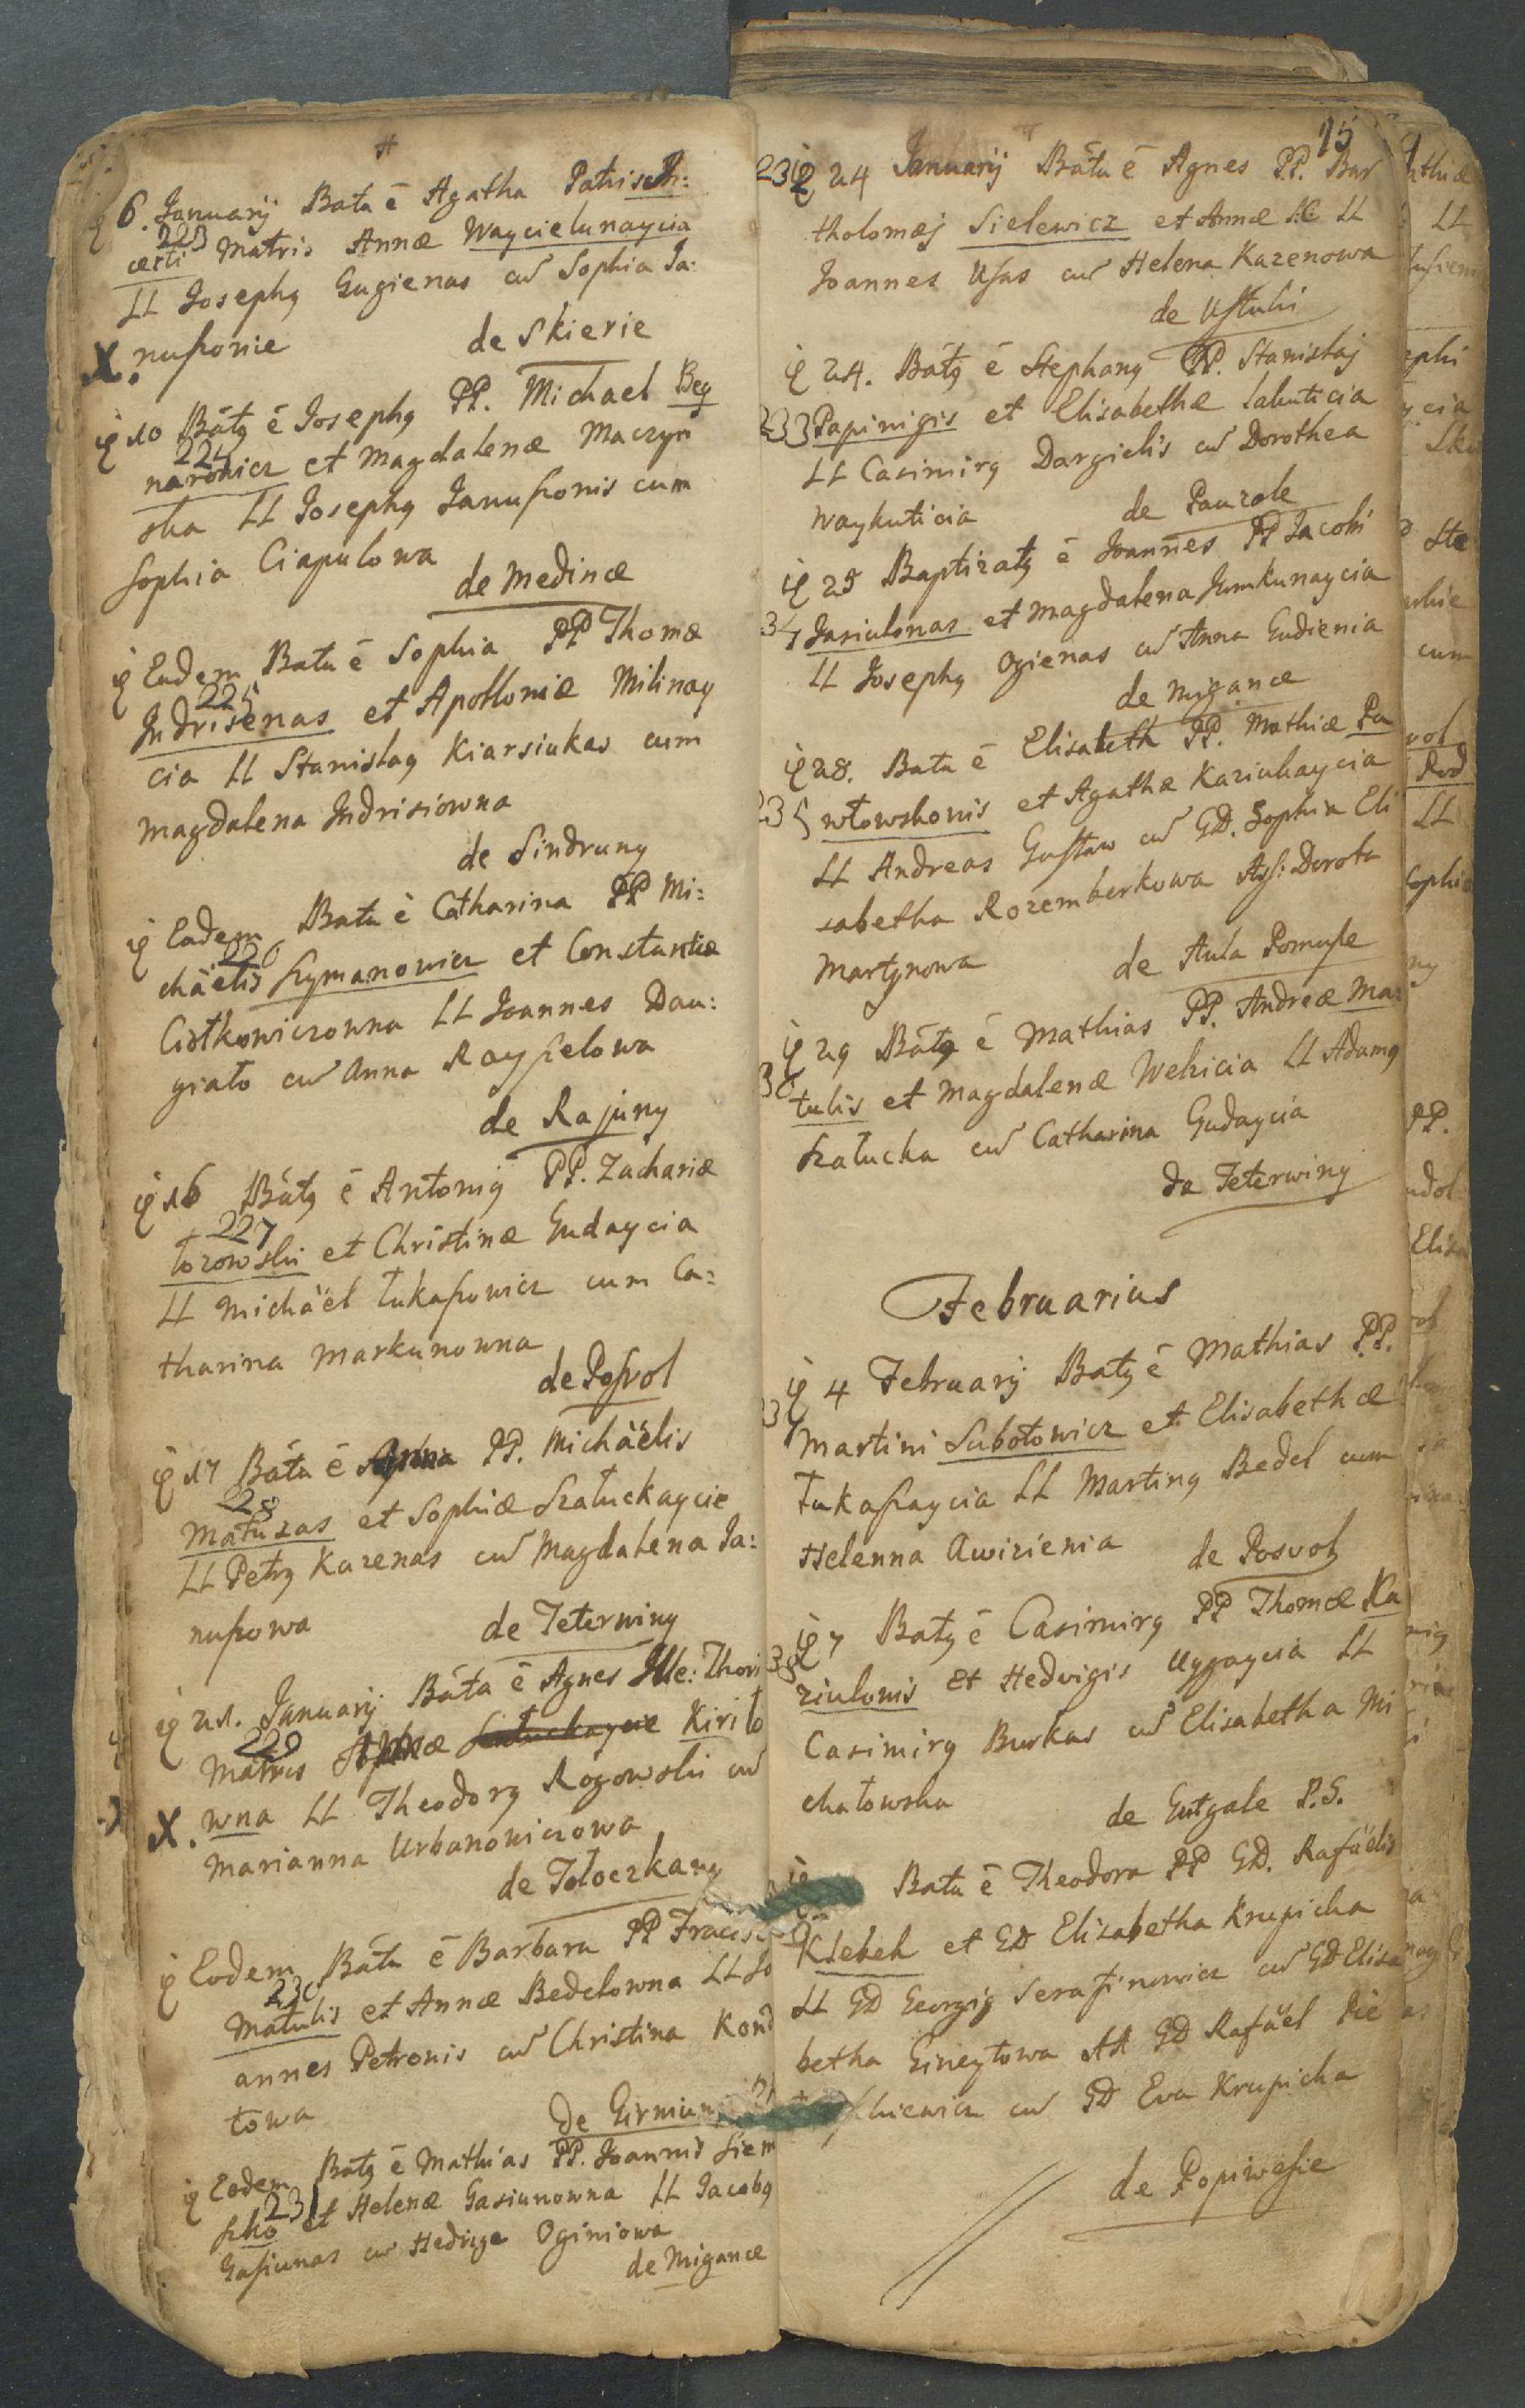 6. Januarij Bata ē Agatha Patris In:
223
certi Matris Annæ Waycielunaycia
LL Josephg Gugienas cū Sophia Ja:
X. nuszonie de Skierie
10 Batg ē Josephg PP. Michael Bey
224
narowicz et Magdalenæ Maczyn
ska LL Josephg Januszonis cum
Sophia Ciapulowa
de Medinæ
Eadem Bata ē Sophia PP Thomæ
225
Indrisenas et Apolloniæ Milinay
cia LL Stanislag Kiarsiukas cum
Magdalena Indrisiowna
de Sindruny
Eadem Bata ē Catharina PP Mi:
226
chäelis Szymanowicz et Constantiæ
Ciotkowiczowna LL Joannes Dau:
giało cū Anna Rayszelowa
de Rajuny
16 Batg ē Antonig PP. Zachariæ
227
Łozowski et Christinæ Gudaycia
LL Michäel Łukaszowicz cum Ca:
tharina Markunowna
de Poswol
17 Bata ē PP. Michäelis
228
Matuzas et Sophiæ Szałuckaycie
LL Petrg Kazenas cū Magdalena Ja:
nuszowa de Teterwiny
21. Januarij Bata ē Agnes Ille: Thori
229
Matris Kiriło
X. wna LL Theodorg Rogowski cū
Marianna Urbanowiczowa
de Tołoczkany
Eodem Bata ē Barbara PP Fracis:
230
Matulis et Annæ Bedelowna LL Jo
annes Petronis cū Christina Kond
towa de Girniun
Eodem Batg ē Mathias PP. Joannis Siem
231
szko et Helenæ Gasiunowna LL Jacobg
Gasiunas cū Hedvige Oginiowa
de Miganæ
15
232 24 Januarij Bata ē Agnes PP. Bar
tholomæj Sielewicz et Annæ LL
Joannes Usas cū Helena Kazenowa
de Ustuki
24. Batg ē Stephang PP. Stanislaj
233 Papinigis et Elisabethæ Lakuticia
LL Casimirg Dargielis cū Dorothea
Waykuticia de Pauzole
25 Baptizatg ē Joannes PP Jacobi
34 Jasiulonas et Magdalena Jumkunaycia
LL Josephg Ogienas cū Anna Gudienia
de Miganæ
28. Bata ē Elisabeth PP. Mathiæ Pa
235 włowskonis et Agathæ Kaziukaycia
LL Andreas Gustaw cū GD. Sophia Eli
sabetha Rozemberkowa Ass: Dorota
Martynowa de Aula Pomusze
29 Batg ē Mathias PP. Andreæ Ma:
36 tulis et Magdalenæ Wekicia LL Adamg
Szałucka cū Catharina Gudaycia
de Teterwiny
Februarius
4 Februarij Batg ē Mathias PP.
Martini Subotowicz et Elisabethæ
Łukaszaycia LL Marting Bedel cum
Helenna Awizienia de Posvolg
7 Batg ē Casimirg PP Thomæ Ka
38 ziulonis et Hedvigis LL
Casimirg Burkas cū Elisabetha Mi
chałowska de Gutgale P.S.
Bata ē Theodora PP GD. Rafäelis
Klebek et GD Elisabetha Krupicka
LL GD Georgig Serafinowicz cū GD Elisa
betha Gineytowa AA GD Rafäel Pie
kiewicz cū GD Eva Krupicka
de Popiwesie